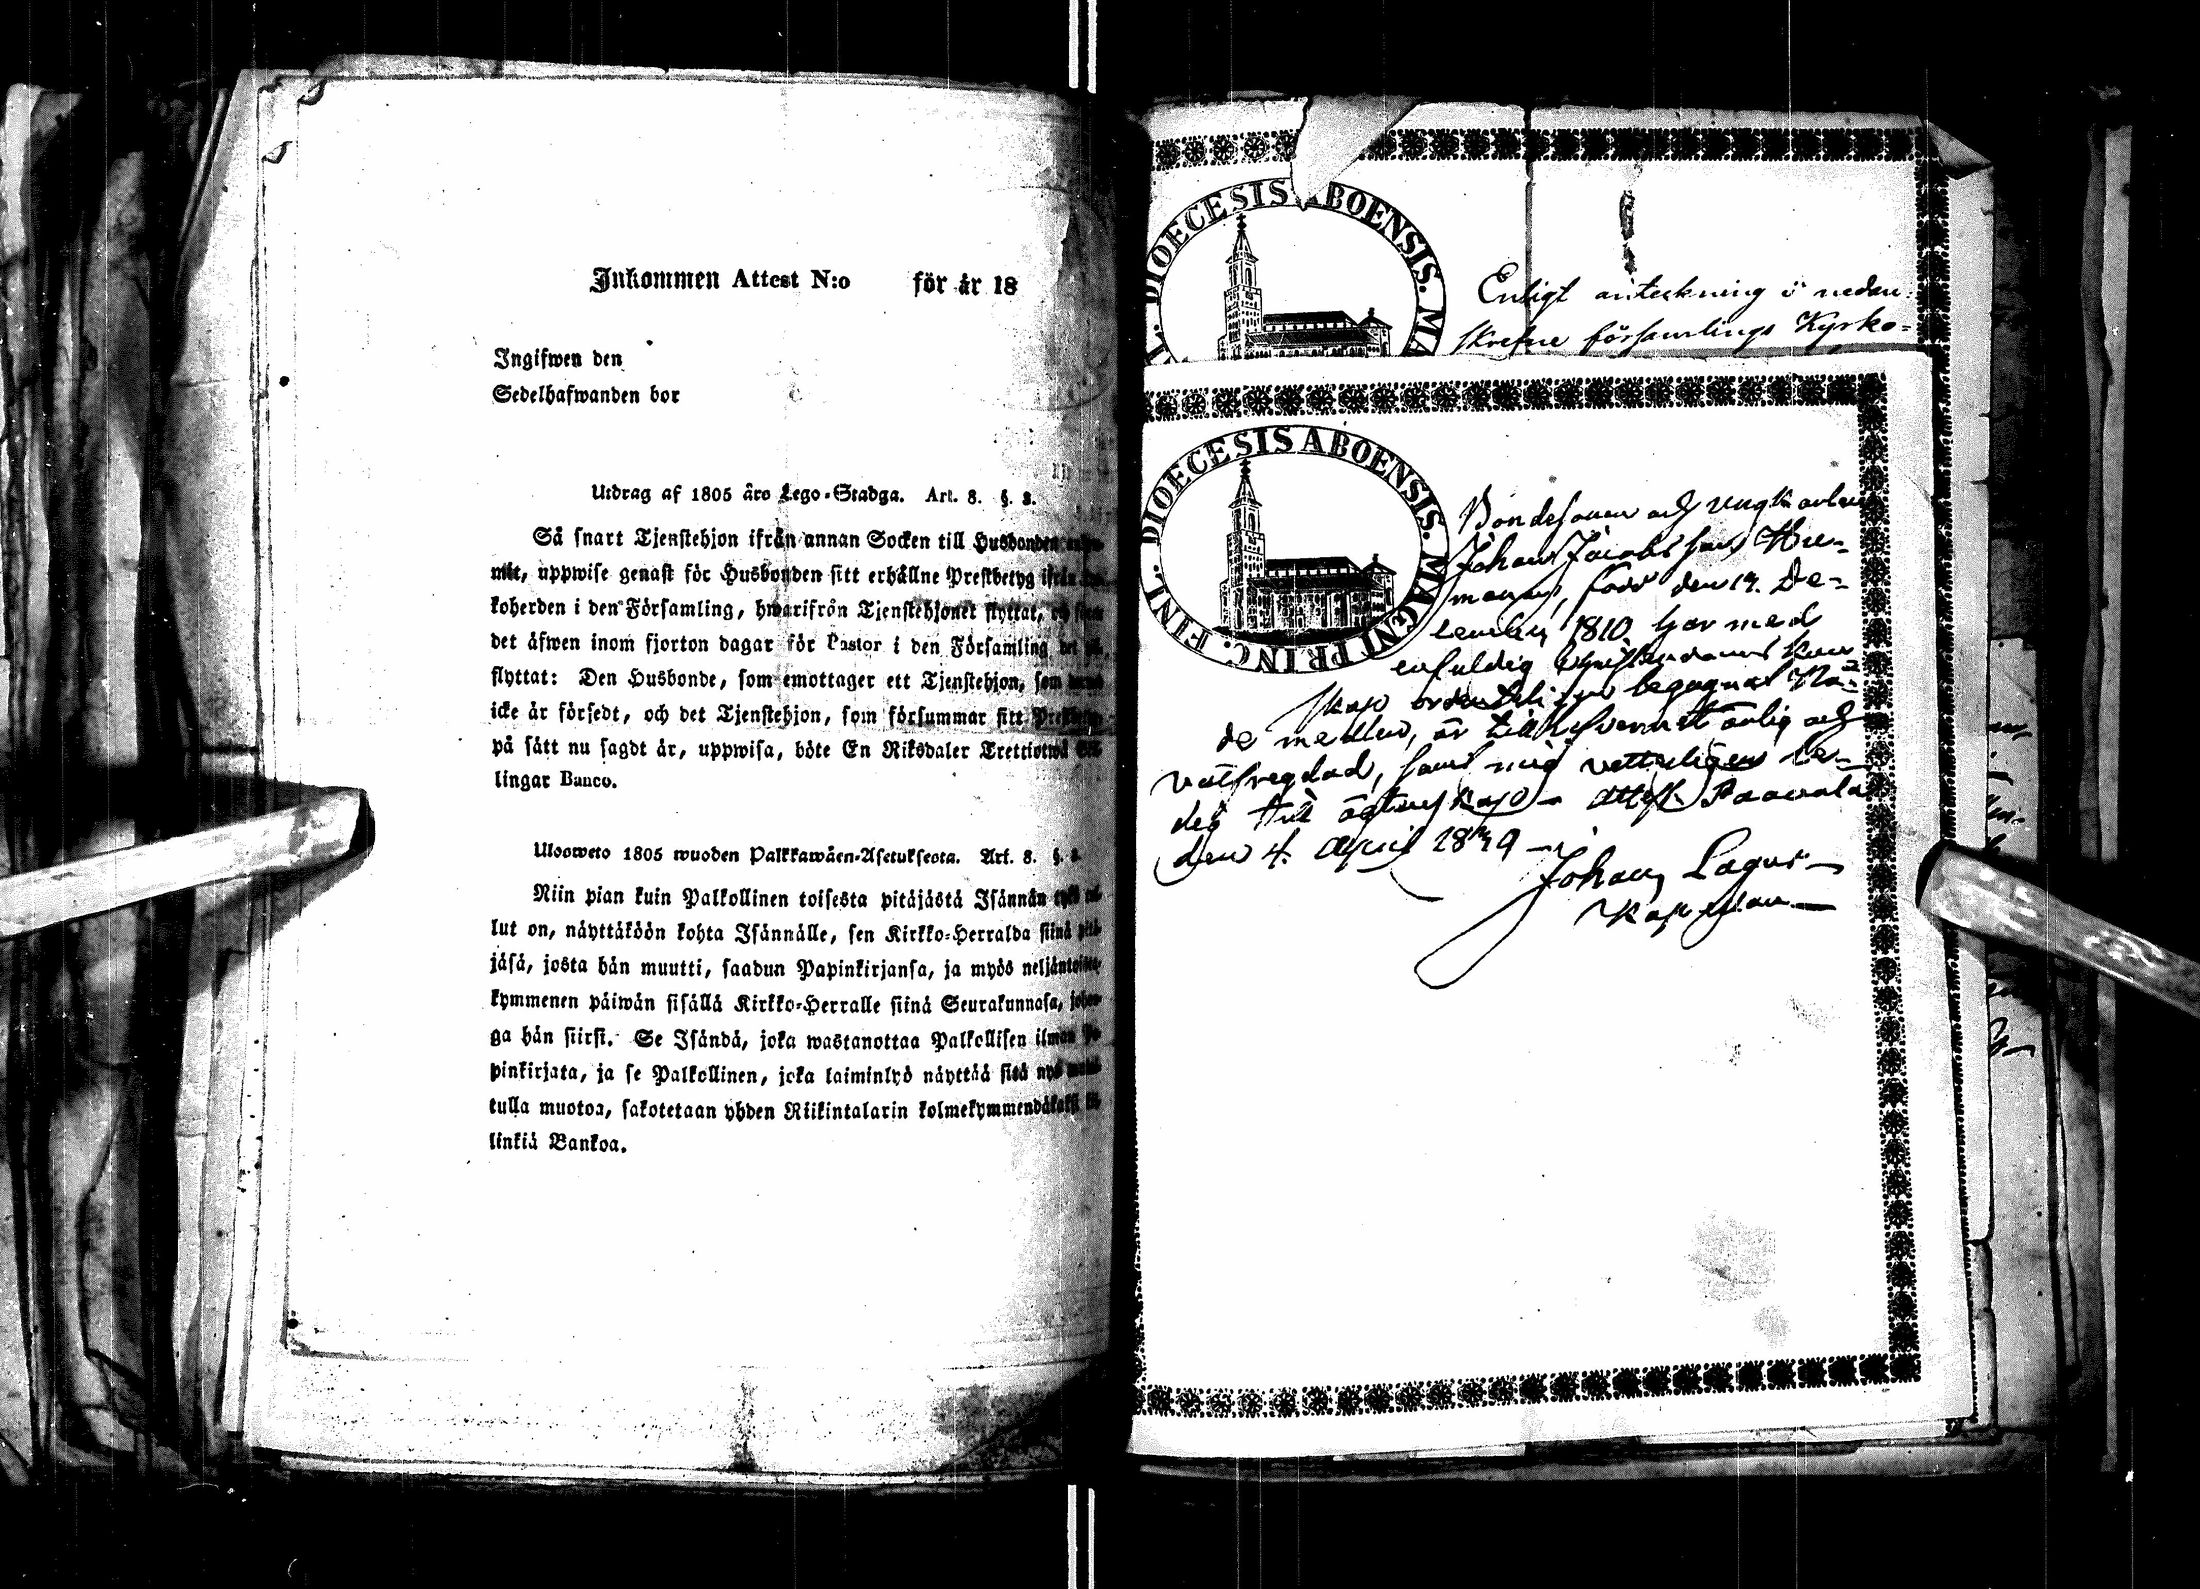 Inkommen Attest N:o för år 18
Ingifwen den
Sedelhafwanden bor
Utdrag af 1805 års Lego-Stadga. Art. 8. §. 2.
Så snart Tjenstehjon ifrån annan Socken till Husbonden
mit, uppwise genast för Husbonden sitt erhållne Prestbetyg ifrån
koherden i den Församling, hwarifrån Tjenstehjonet flyttat,
det äfwen inom fjorton dagar för Pastor i den Församling
flyttat: Den Husbonde, som emottager ett Tjenstehjon, som
icke är försedt, och det Tjenstehjon, som försummar sitt
på sätt nu sagdt är, uppwisa, böte En Riksdaler Trettiotwå
lingar Banco.
Ulosweto 1805 wuoden Palkkawäen-Asetuksesta. Art. 8. §.
Niin pian kuin Palkollinen toisesta pitäjästä Isännän
lut on, näyttäköön kohta Isännälle, sen Kirkko-Herralda siinä
jäsä, josta hän muutti, saadun Papinkirjansa, ja myös
kymmenen päiwän sisällä Kirkko-Herralle siinä Seurakunnasa,
ga hän siirsi. Se Isändä, joka wastanottaa Palkollisen ilman
pinkirjata, ja se Palkollinen, joka laiminlyö näyttää sitä
tulla muotoa, sakotetaan yhden Riikintalarin
linkiä Bankoa.
DIOECESIS ABOENSIS. MA
Enligt anteckning i nedan-
skrefne församlings Kyrko-
DIOECESIS ABOENSIS. MAGNI PRINC. FINL.
Bondesonen och
Johan Jacobsson
född den 19. De-
cember 1810 har med
enfuldig Christendoms kun
skap ordentligen begagnat Nå-
de medlen, är till lefvernet ärlig och
välfregdad, samt mig vetterligen le-
dig till ägtenskap attest.
den 4. April 1849
Johan Lagus
Kapellan